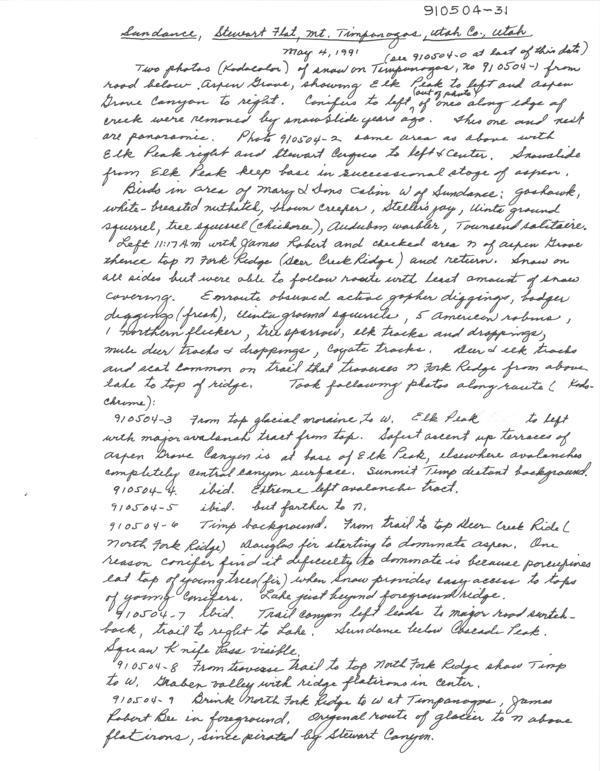 910504-31
Sundance, Stewart Flat, Mt. Timpanogos, Utah Co., Utah
May 4, 1991 (see 910504-0 at last of this date)
Two photos (Kodacolor) of snow on Timpanogos, no 910504-1 from
road below Aspen Grove, showing Elk Peak to left and aspen
Grove Canyon to right. Conifers to left, (out of photo) of ones along edge of
creek were removed by snowslide years ago. This one and next
are panoramic. Photo 910504-2 same area as above with
Elk Peak right and Stewart Cirques to left & center. Snowslide
from Elk Peak keep base in successional stage of aspen.
Birds in area of Mary & Sons cabin W of Sundance: goshawk,
white-breasted nuthatch, brown creeper, Steller's jay, Uinta ground
squirrel, tree squirrel (chickoree), Audubon warbler, Townsend solitaire.
Left 11:17 AM with James Robert and checked area N of Aspen Grove
thence top N Fork Ridge (Deer Creek Ridge) and return. Snow on
all sides but were able to follow route with least amount of snow
covering. Enroute observed active gopher diggings, badger
diggings (fresh), Uinta ground squirrels, 5 American robins,
1 northern flicker, tree sparrow, elk tracks and droppings,
mule deer tracks & droppings, coyote tracks. Deer & elk tracks
and scat common on trail that traverses N Fork Ridge from above
lake to top of ridge. Took following photos along route (Koda-
chrome):
910504-3 From top glacial moraine to W. Elk Peak to left
with major avalanch tract from top. Safest ascent up terraces of
Aspen Grove Canyon is at base of Elk Peak, elsewhere avalanches
completely control canyon surface. Summit Timp distant background.
910504-4 ibid. Extreme left avalanche tract.
910504-5 ibid. but farther to N.
910504-6 Timp background. From trail to top Deer Creek Ride (
North Fork Ridge) Douglas fir starting to dominate aspen. One
reason conifer find it dificulty to dominate is because porcupines
eat top of young trees (fir) when snow provides easy access to tops
of young conifers. Lake just beyond foreground ridge.
910504-7 Ibid. Trail canyon left leads to major road switch-
back, trail to right to Lake. Sundance below Cascade Peak.
Squaw Knife Pass visible.
910504-8 From traverse trail to top North Fork Ridge show Timp
to W. Graben valley with ridge flatirons in center.
910504-9 Brink North Fork Ridge to W at Timpanogos, James
Robert Bee in foreground. Original route of glacier to N above
flatirons, since pirated by Stewart Canyon.